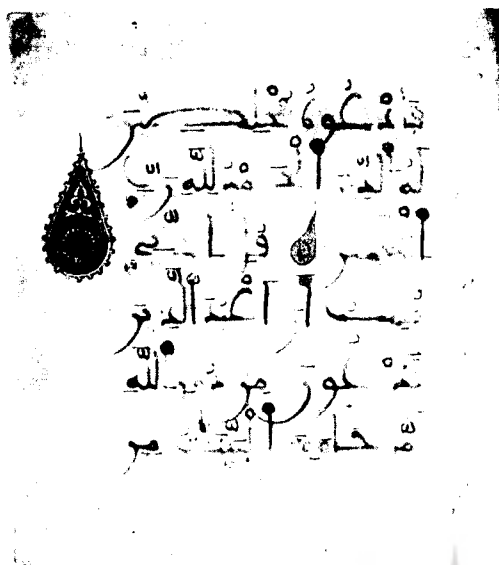 فَٱدْعُوهُ مُخْلِصِينَ
لَهُ ٱلدِّينَ ٱلْحَمْدُ لِلَّهِ رَبِّ
ٱلْعَٰلَمِينَ قُلْ إِنِّي
نُهِيتُ أَنْ أَعْبُدَ ٱلَّذِينَ
تَدْعُونَ مِن دُونِ ٱللَّهِ
لَمَّا جَآءَنِيَ ٱلْبَيِّنَٰتُ مِن